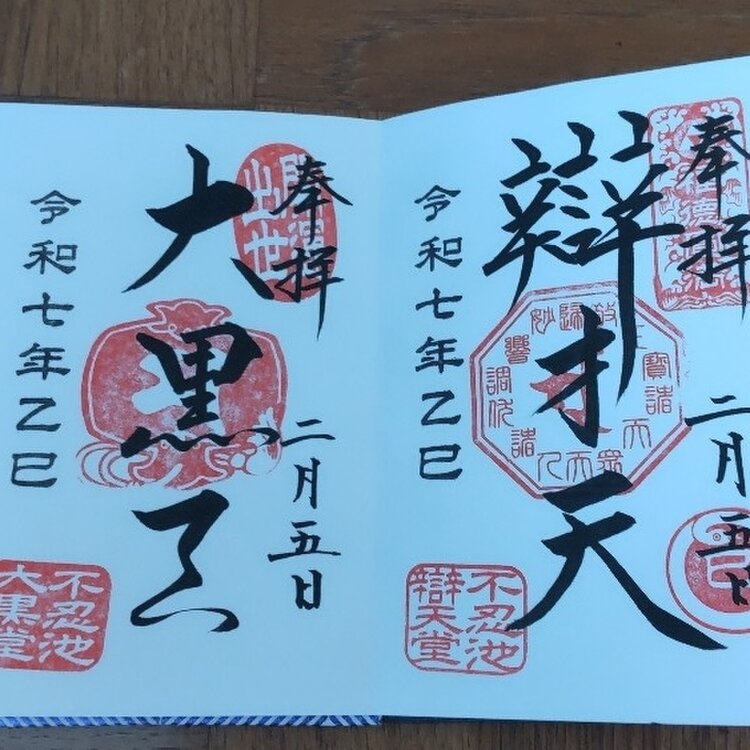 奉拝
二月五日
辯才天
令和七年乙巳
不忍池
辯天堂
奉拝
二月五日
大黒天
令和七年乙巳
出世
不忍池
大黒堂